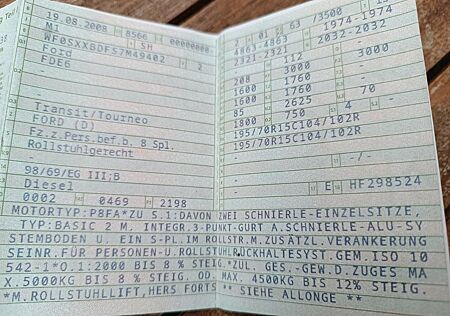 19.08.2008 8566 00000000
M. SH
WF0SXXBDFS7M49402 2
Ford
FDE6
-
-
Transit/Tourneo
FORD (D)
Fz.z.Pers.bef.b. 8 Spl.
Rollstuhlgerecht
-
98/69/EG III;B
Diesel
0002 0469 2198
2 01 63 /3500
4863-4863 1974-1974
2321-2321 2032-2032
112
208 3000
1600 1760 -
1600 1760 -
85 2625 70
1800 750 4 -
195/70R15C104/102R
195/70R15C104/102R
-
- -/-
E HF298524
MOTORTYP:P8FA*ZU S.1:DAVON ZWEI SCHNIERLE-EINZELSITZE,
TYP:BASIC 2 M. INTEGR.3-PUNKT-GURT A.SCHNIERLE-ALU-SY
STEMBODEN U. EIN S-PL.IM ROLLSTR.M.ZUSÄTZL.VERANKERUNG
SEINR.FÜR PERSONEN-U.ROLLSTUHLRÜCKHALTESYST.GEM.ISO 10
542-1*O.1:2000 BIS 8 % STEIG.*ZUL. GES.-GEW.D.ZUGES MA
X.5000KG BIS 8 % STEIG. OD. MAX. 4500KG BIS 12% STEIG.
*M.ROLLSTUHLLIFT,HERS FORTS ** SIEHE ALLONGE **